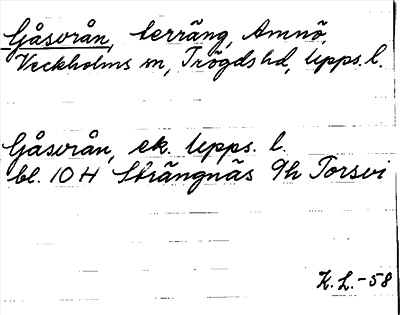 Gåsvrån, terräng, Amnö,
Veckholms sn, Trögds hd, Upps. l.
Gåsvrån, ek. Upps. l.
bl. 10 H Strängnäs 9h Torsvi
K. L. -58